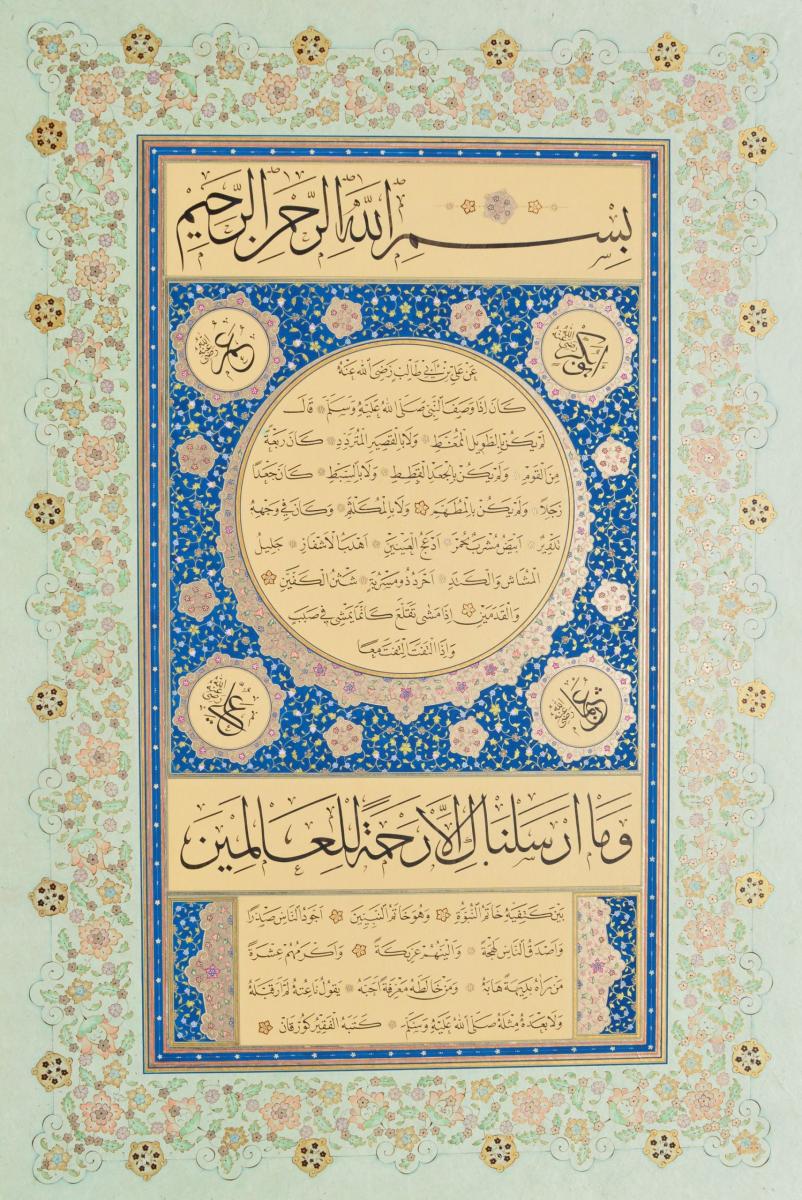 بِسْمِ اللّٰهِ الرَّحْمٰنِ الرَّحِيمِ
ابو بكر رضي الله عنه
عمر رضي الله عنه
عَنْ عَلِيِّ بْنِ اَبِي طَالِبٍ رَضِيَ اللهُ عَنْهُ
كَانَ اِذَا وَصَفَ النَّبِيَّ صَلَّى اللهُ عَلَيْهِ وَسَلَّمَ قَالَ
لَمْ يَكُنْ بِالطَّوِيلِ الْمُمَّغِطِ وَلَا بِالْقَصِيرِ الْمُتَرَدِّدِ كَانَ رَبْعَةً
مِنَ الْقَوْمِ وَلَمْ يَكُنْ بِالْجَعْدِ الْقَطَطِ وَلَا بِالسَّبِطِ كَانَ جَعْدًا
رَجِلًا وَلَمْ يَكُنْ بِالْمُطَهَّمِ وَلَا بِالْمُكَلْثَمِ وَكَانَ فِي وَجْهِهِ
تَدْوِيرٌ اَبْيَضُ مُشْرَبٌ حُمْرَةً اَدْعَجُ الْعَيْنَيْنِ اَهْدَبُ الْاَشْفَارِ جَلِيلُ
الْمُشَاشِ وَالْكَتَدِ اَجْرَدُ ذُو مَسْرُبَةٍ شَثْنُ الْكَفَّيْنِ
وَالْقَدَمَيْنِ اِذَا مَشَى تَقَلَّعَ كَاَنَّمَا يَمْشِي فِي صَبَبٍ
وَاِذَا الْتَفَتَ الْتَفَتَ مَعًا
عثمان رضي الله عنه
علي رضي الله عنه
وَمَا اَرْسَلْنَاكَ اِلَّا رَحْمَةً لِلْعَالَمِينَ
بَيْنَ كَتِفَيْهِ خَاتَمُ النُّبُوَّةِ وَهُوَ خَاتَمُ النَّبِيِّينَ اَجْوَدُ النَّاسِ صَدْرًا
وَاَصْدَقُ النَّاسِ لَهْجَةً وَاَلْيَنُهُمْ عَرِيكَةً وَاَكْرَمُهُمْ عِشْرَةً
مَنْ رَآهُ بَدِيهَةً هَابَهُ وَمَنْ خَالَطَهُ مَعْرِفَةً اَحَبَّهُ يَقُولُ نَاعِتُهُ لَمْ اَرَ قَبْلَهُ
وَلَا بَعْدَهُ مِثْلَهُ صَلَّى اللهُ عَلَيْهِ وَسَلَّمَ كَتَبَهُ الْفَقِيرُ